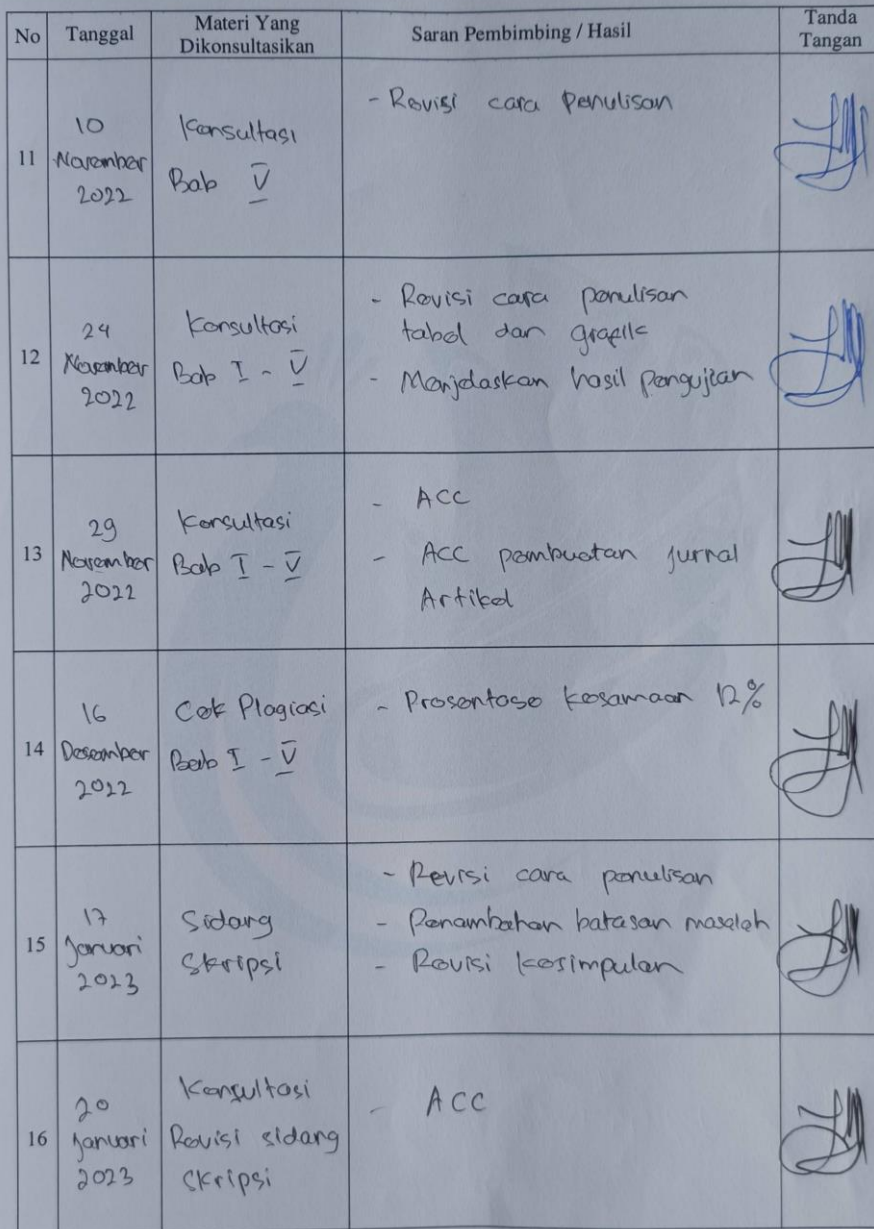 No Tanggal Materi Yang Dikonsultasikan Saran Pembimbing / Hasil Tanda Tangan
11
10
November
2022
Konsultasi
Bab V
- Revisi cara Penulisan
12
24
November
2022
Konsultasi
Bab I - V
- Revisi cara penulisan
tabel dan grafik
- Menjelaskan hasil pengujian
13
29
November
2022
Konsultasi
Bab I - V
- ACC
- ACC pembuatan jurnal
Artikel
14
16
Desember
2022
Cek Plagiasi
Bab I - V
- Prosentase kesamaan 12%
15
17
Januari
2023
Sidang
Skripsi
- Revisi cara penulisan
- Penambahan batasan masalah
- Revisi kesimpulan
16
20
Januari
2023
Konsultasi
Revisi sidang
Skripsi
- ACC